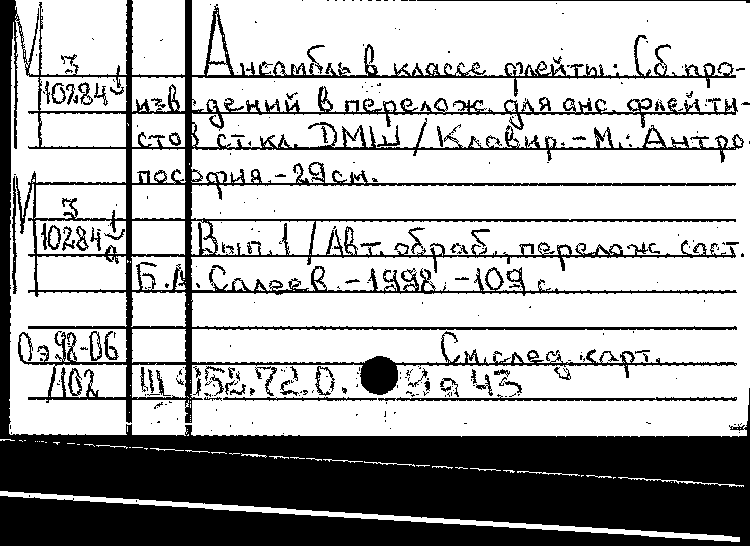 М З 10284
Ансамбль в классе флейты: Сб. про-
изведений в перелож. для анс. флейти-
стов ст. кл. ДМШ / Клавир. - М.: Антро-
пософия. - 29 см.
М З 10284
Вып. 1 / Авт. обраб., перелож. сост.
Б.А. Салеев. - 1998. - 109 с.
Оэ 98-06 /102
См. след. карт.
Ш 952.72.0. 9 я 43